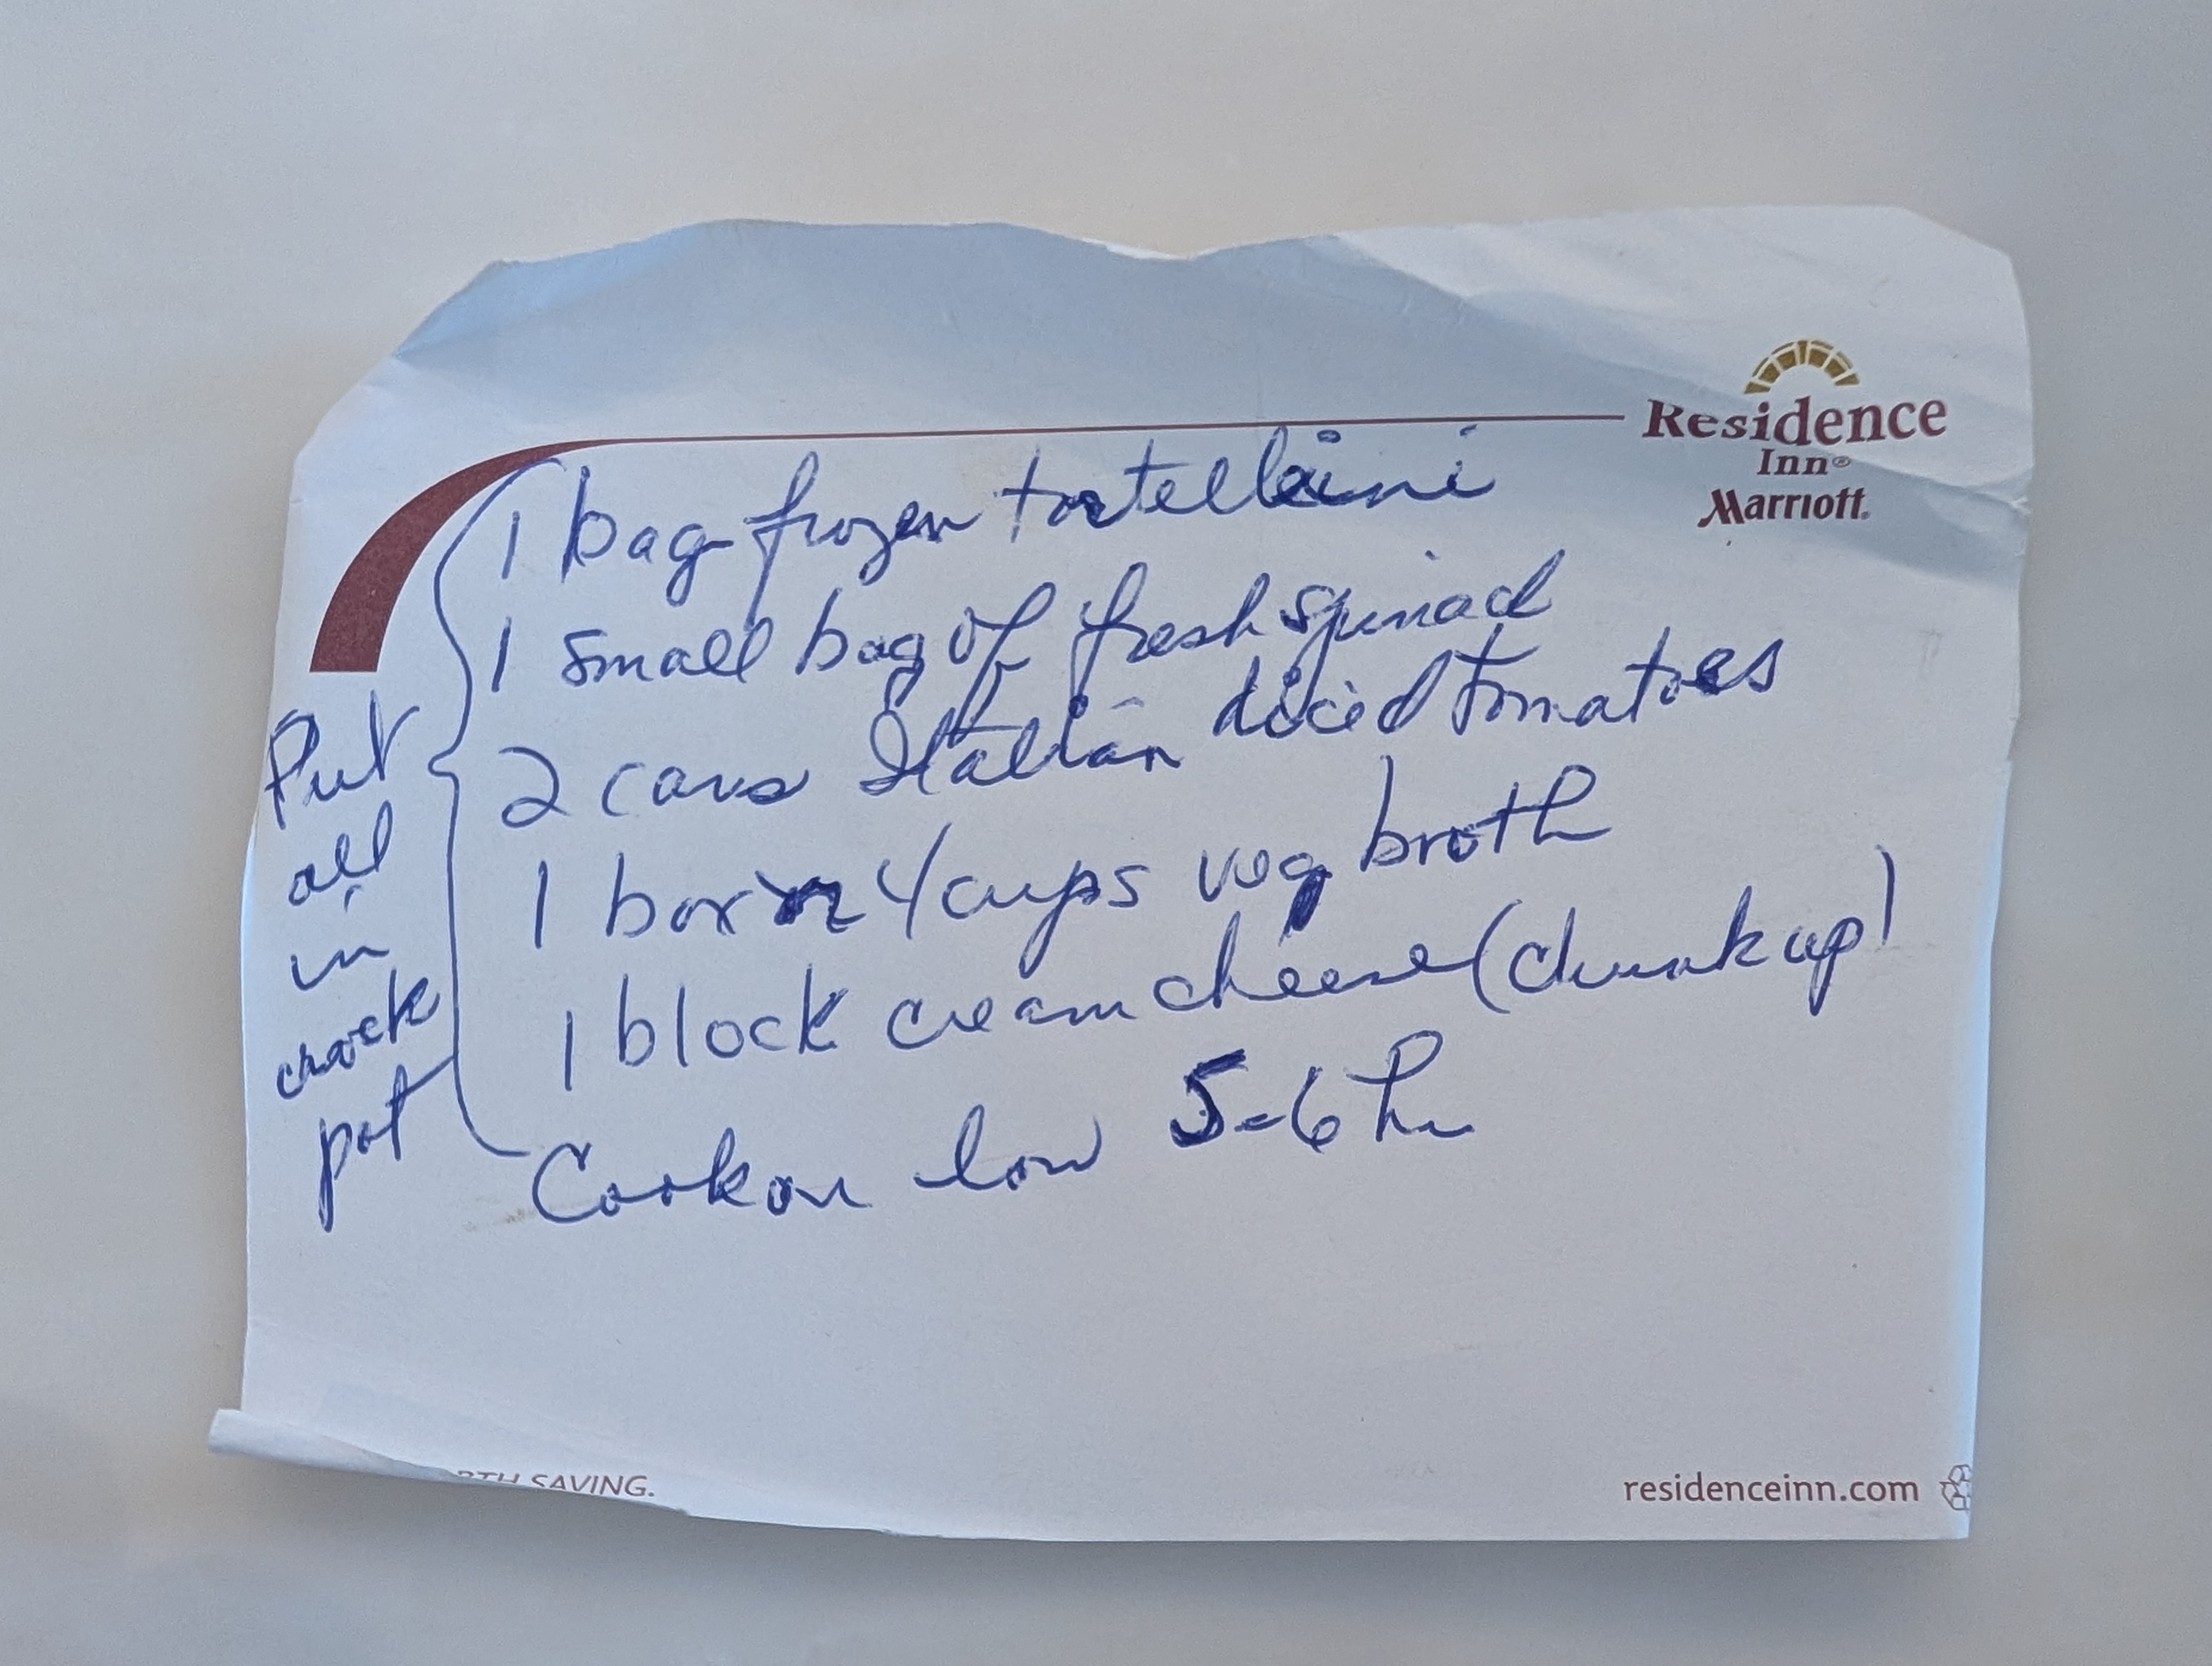 Residence
Inn®
Marriott®
1 bag frozen tortellini
1 small bag of fresh spinach
2 cans Italian diced tomatoes
1 box or 4 cups veg broth
1 block cream cheese (chunk up)
Cook on low 5-6 hr
Put
all
in
crock
pot
RTH SAVING.
residenceinn.com